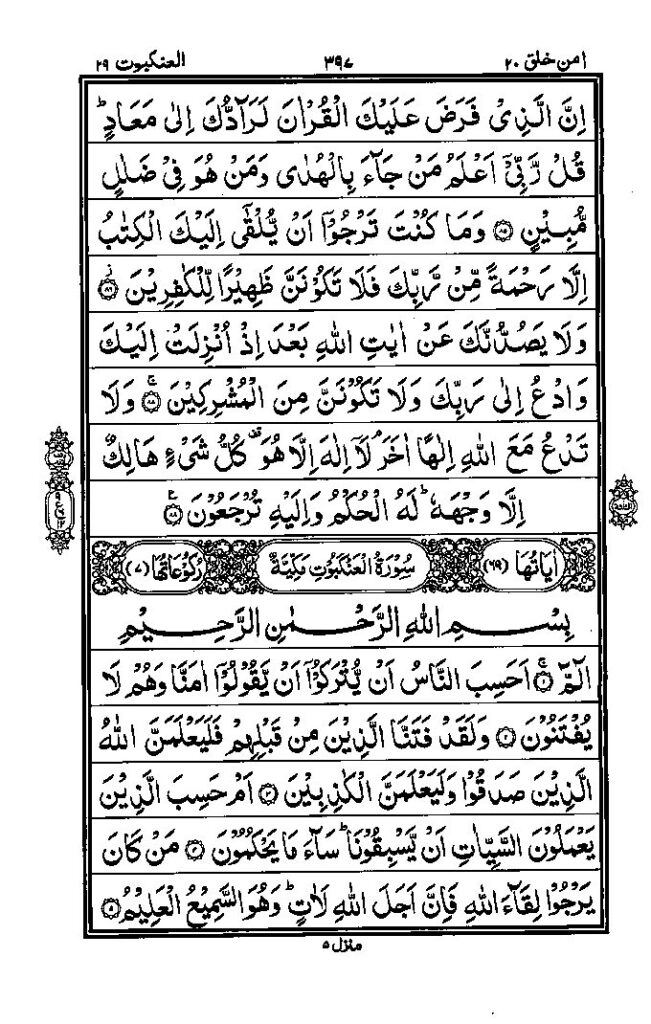 امن خلق ۲۰ ۳۹۷ العنکبوت ۲۹
اِنَّ الَّذِیْ فَرَضَ عَلَیْكَ الْقُرْاٰنَ لَرَآدُّكَ اِلٰی مَعَادٍ ؕ
قُلْ رَّبِّیْۤ اَعْلَمُ مَنْ جَآءَ بِالْهُدٰی وَمَنْ هُوَ فِیْ ضَلٰلٍ
مُّبِیْنٍ ﴿۸۵﴾ وَمَا كُنْتَ تَرْجُوْۤا اَنْ یُّلْقٰۤی اِلَیْكَ الْكِتٰبُ
اِلَّا رَحْمَةً مِّنْ رَّبِّكَ فَلَا تَكُوْنَنَّ ظَهِیْرًا لِّلْكٰفِرِیْنَ ﴿۸۶﴾
وَلَا یَصُدُّنَّكَ عَنْ اٰیٰتِ اللّٰهِ بَعْدَ اِذْ اُنْزِلَتْ اِلَیْكَ
وَادْعُ اِلٰی رَبِّكَ وَلَا تَكُوْنَنَّ مِنَ الْمُشْرِكِیْنَ ﴿۸۷﴾ وَلَا
تَدْعُ مَعَ اللّٰهِ اِلٰهًا اٰخَرَ ۘ لَاۤ اِلٰهَ اِلَّا هُوَ ۫ كُلُّ شَیْءٍ هَالِكٌ
اِلَّا وَجْهَهٗ ؕ لَهُ الْحُكْمُ وَاِلَیْهِ تُرْجَعُوْنَ ﴿۸۸﴾
اٰیَاتُهَا (۶۹) سُوْرَةُ الْعَنْكَبُوْتِ مَكِّیَّةٌ رُكُوْعَاتُهَا (۷)
بِسْمِ اللّٰهِ الرَّحْمٰنِ الرَّحِیْمِ
الٓمّٓ ﴿۱﴾ اَحَسِبَ النَّاسُ اَنْ یُّتْرَكُوْۤا اَنْ یَّقُوْلُوْۤا اٰمَنَّا وَهُمْ لَا
یُفْتَنُوْنَ ﴿۲﴾ وَلَقَدْ فَتَنَّا الَّذِیْنَ مِنْ قَبْلِهِمْ فَلَیَعْلَمَنَّ اللّٰهُ
الَّذِیْنَ صَدَقُوْا وَلَیَعْلَمَنَّ الْكٰذِبِیْنَ ﴿۳﴾ اَمْ حَسِبَ الَّذِیْنَ
یَعْمَلُوْنَ السَّیِّاٰتِ اَنْ یَّسْبِقُوْنَا ؕ سَآءَ مَا یَحْكُمُوْنَ ﴿۴﴾ مَنْ كَانَ
یَرْجُوْا لِقَآءَ اللّٰهِ فَاِنَّ اَجَلَ اللّٰهِ لَاٰتٍ ؕ وَهُوَ السَّمِیْعُ الْعَلِیْمُ ﴿۵﴾
منزل ۵